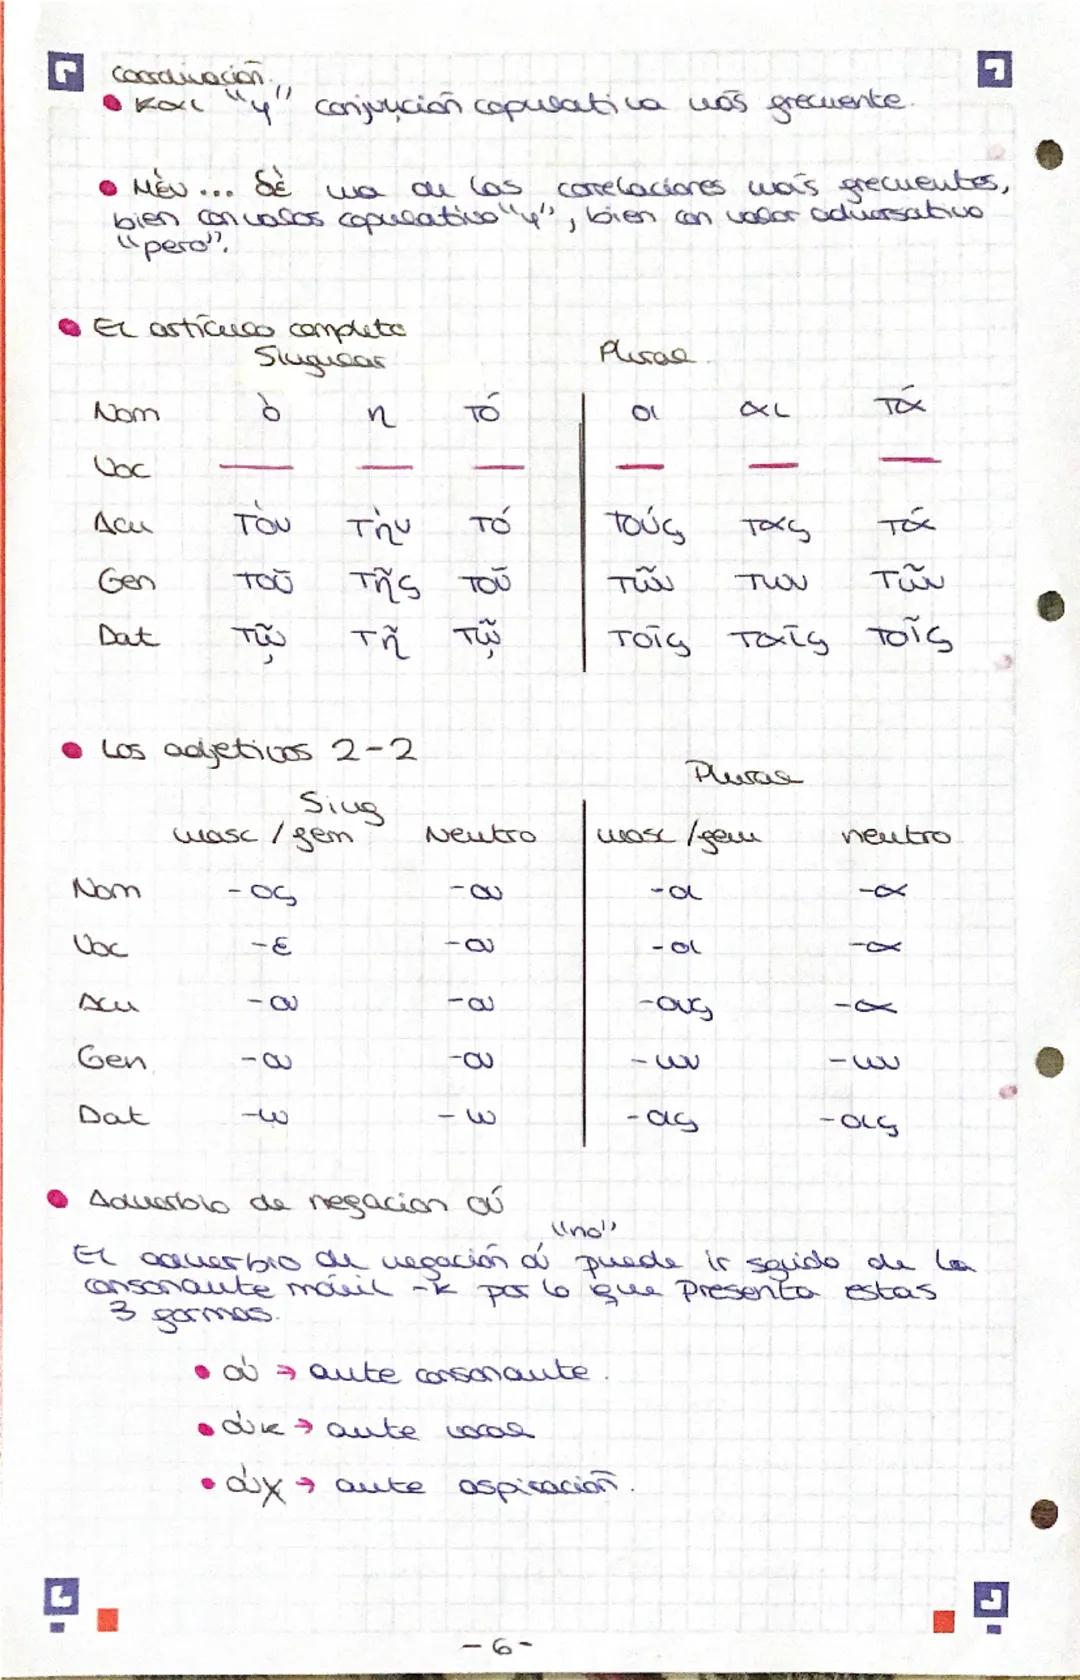 Coordinación.
• καὶ "y" conjunción copulativa más frecuente.
• Μὲν ... δὲ una de las correlaciones más frecuentes,
bien con valor copulativo "y", bien con valor adversativo
"pero".
• El artículo completo
Singular Plural
Nom ὁ η τό οι αι τά
Voc — — — — — —
Acu τὸν τὴν τό τούς τας τά
Gen τοῦ τῆς τοῦ τῶν των τῶν
Dat τῷ τῆ τῷ τοῖς ταῖς τοῖς
• Los adjetivos 2-2
Sing Plural
masc / fem Neutro masc / fem neutro
Nom -ος -ον -οι -α
Voc -ε -ον -οι -α
Acu -ον -ον -ους -α
Gen -ου -ου -ων -ων
Dat -ω -ω -οις -οις
• Adverbio de negacion ού
"no"
El adverbio de negación ού puede ir seguido de la
consonante móvil -κ por lo que presenta estas
3 formas.
• οὐ → ante consonante.
• οὐκ → ante vocal
• οὐχ → ante aspiración.
-6-